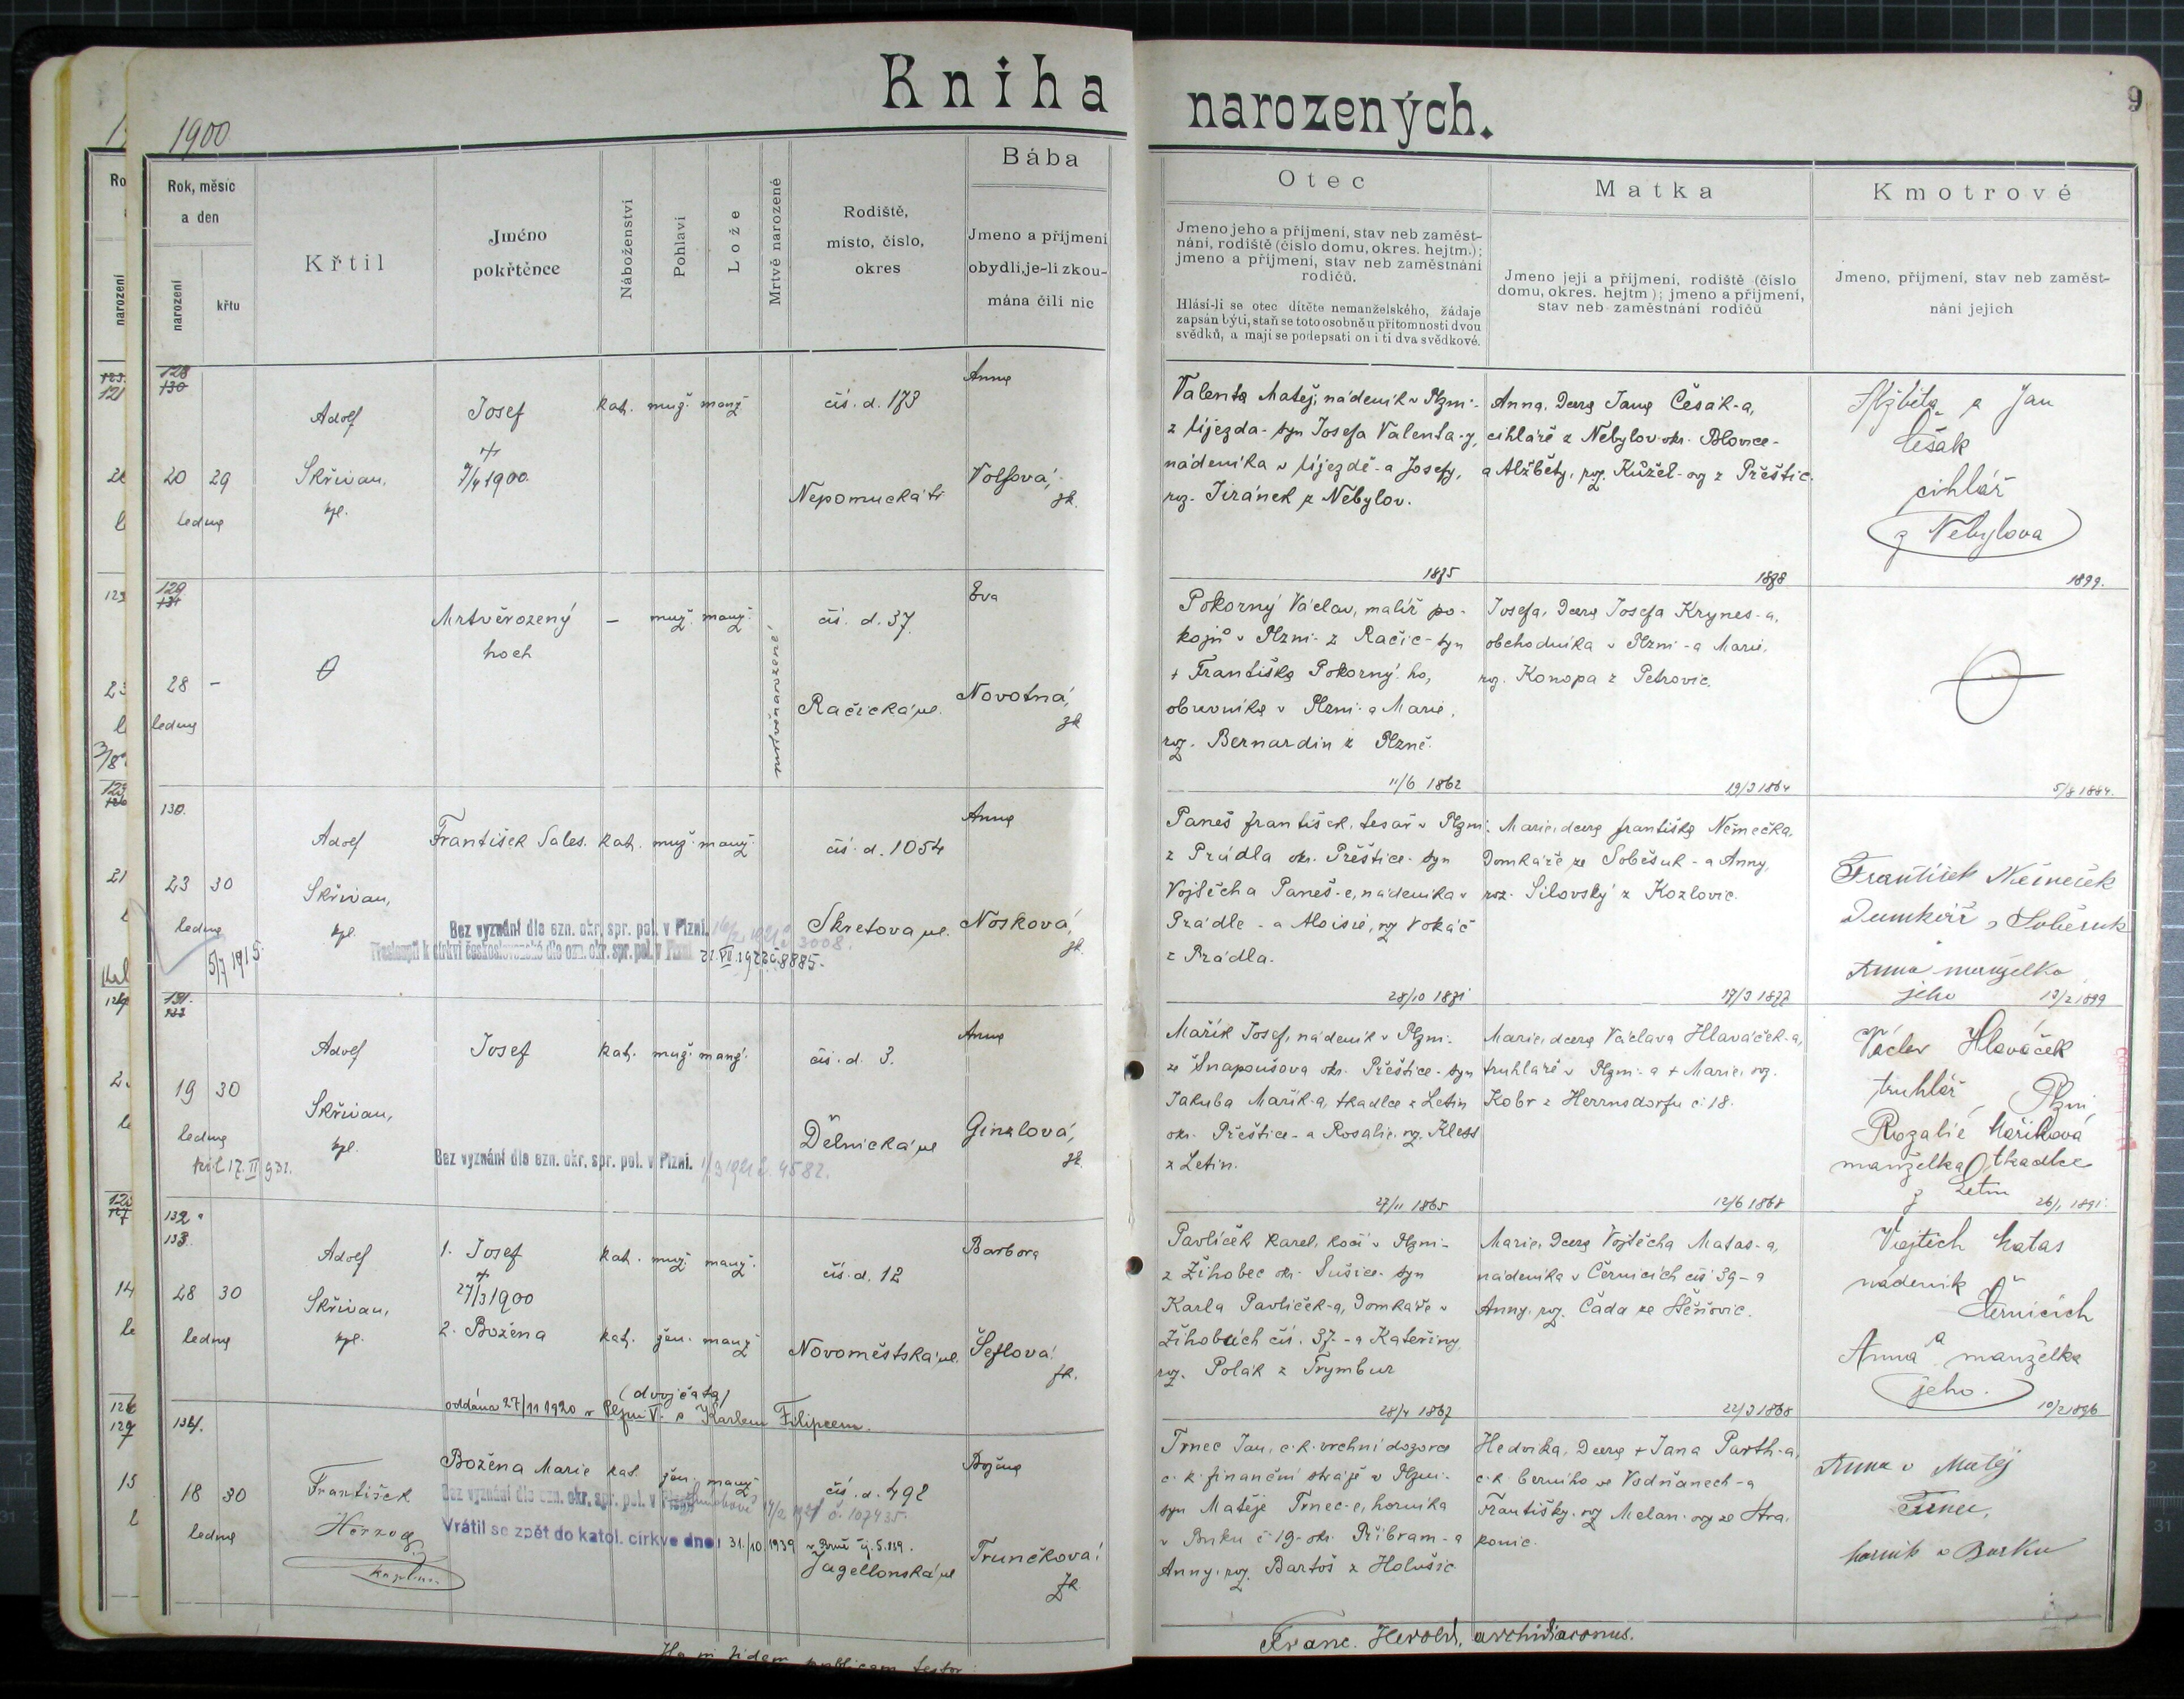 Kniha narozených.
9
1900
Rok, měsíc a den
narození
křtu
Křtil
Jméno pokřtěnce
Náboženství
Pohlaví
Lože
Mrtvě narozené
Rodiště, místo, číslo, okres
Bába
Jmeno a příjmení
obydlí, je-li zkou-
mána čili nic
Otec
Jmeno jeho a příjmení, stav neb zaměst-
nání, rodiště (číslo domu, okres. hejtm.);
jmeno a příjmení, stav neb zaměstnání
rodičů.
Hlásí-li se otec dítěte nemanželského, žádaje
zapsán býti, staň se toto osobně u přítomnosti dvou
svědků, a mají se podepsati on i ti dva svědkové.
Matka
Jmeno její a příjmení, rodiště (číslo
domu, okres. hejtm); jmeno a příjmení,
stav neb zaměstnání rodičů
Kmotrové
Jmeno, příjmení, stav neb zaměst-
nání jejich
128
130
20 29
ledna
Adolf
Skřivan,
kpl.
Josef
+
7/4 1900
kat. muž. manž.
čís. d. 173
Nepomucká tř.
Anna
Volfová,
zk.
Valenta Matěj, nádeník v Plzni-
z Újezda- syn Josefa Valenta-y,
nádeníka v Újezdě- a Josefy,
roz. Jiránek z Nebylov.
Anna, dcera Jana Češák-a,
cihláře z Nebylov okr. Blovice-
a Alžběty, roz. Kůžel-ov z Přeštic.
Alžběta a Jan
Češák
cihlář
z Nebylova
129
131
28 -
ledna
Mrtvěrozený
hoch
- muž. manž.
mrtvěnarozené
čís. d. 37
Račická ul.
Eva
Novotná,
zk
1875
Pokorný Václav, malíř po-
kojů v Plzni- z Račic- syn
+ Františka Pokorný-ho,
obuvníka v Plzni- a Marie,
roz. Bernardin z Plzně.
1878
Josefa, dcera Josefa Krynes-a,
obchodníka v Plzni- a Marie,
roz. Konopa z Petrovic.
1899.
130.
23 30
ledna
5/7 1915
Adolf
Skřivan,
kpl.
František Sales. kat. muž. manž.
Bez vyznání dle ozn. okr. spr. pol. v Plzni. 16/2 1921 č. 3008.
Přestoupil k církvi československé dle ozn. okr. spr. pol. v Plzni 21.VII.1922 č. 8885.
čís. d. 1054
Skretova ul.
Anna
Nosková,
zk.
11/6 1862
Paneš František, tesař v Plzni-
z Prádla okr. Přeštice- syn
Vojtěcha Paneš-e, nádeníka v
Prádle - a Aloisie, roz Vokáč
z Prádla.
19/3 1864
Marie, dcera Františka Němečka,
domkáře ze Soběsuk - a Anny,
roz. Silovský z Kozlovic.
5/8 1884.
František Němeček
Domkář z Soběsuk
Anna manželka
jeho
131.
132
19 30
ledna
Adolf
Skřivan,
kpl.
Josef
kat. muž. manž.
Bez vyznání dle ozn. okr. spr. pol. v Plzni. 1/3 1921 č. 4582.
čís. d. 3.
Dělnická ul
Anna
Ginzlová,
zk.
28/10 1871
Mařík Josef, nádeník v Plzni-
ze Snapoušova okr. Přeštice- syn
Jakuba Mařík-a, tkadlce z Letin
okr. Přeštice- a Rosalie, roz. Kless
z Letin.
17/3 1877
Marie, dcera Václava Hlaváček-a,
truhláře v Plzni- a + Marie, roz.
Kobr z Herrnsdorfu č. 18.
13/2 1899
Václav Hlaváček
truhlář, Plzni
Rozalie Maříková
manželka tkadlce
z Letin
132
133.
28 30
ledna
Adolf
Skřivan,
kpl.
1. Josef
+
27/3 1900
kat. muž. manž.
2. Božena
kat. žen. manž
(dvojčata)
oddána 27/11 1920 v Plzni V. s Karlem Filipcem.
čís. d. 12
Novoměstská ul.
Barbora
Šeflová,
zk.
27/11 1865
Pavlíček Karel, kočí v Plzni-
z Žihobec okr. Sušice- syn
Karla Pavlíček-a, domkáře v
Žihobcích čís. 37- a Kateřiny,
roz. Polák z Frymbur
12/6 1868
Marie, dcera Vojtěcha Matas-a,
nádeníka v Černicích čís 39- a
Anny, roz. Čada ze Štěňovic.
26/1 1891.
Vojtěch Matas
nádeník
Černicích
a
Anna manželka
jeho.
134.
18 30
ledna
František
Herzog
kaplan
Božena Marie kat. žen. manž
Bez vyznání dle ozn. okr. spr. pol. v
Vrátil se zpět do katol. církve dne: 31./10. 1939
čís. d. 492
Jagellonská ul
Trunčková,
zk
28/4 1867
Trnec Jan, c. k. vrchní dozorce
c. k. finanční stráže v Plzni-
syn Matěje Trnec-e, horníka
v Brdku č 19- okr. Příbram- a
Anny, roz. Bartoš z Holušic
22/3 1868
Hedvika, dcera + Jana Parth-a,
c. k. berního ve Vodňanech- a
Františky, roz Melan-ov ze Stra-
konic.
10/2 1896
Anna a Matěj
Trnec,
horník
Franc. Herold, archidiaconus.